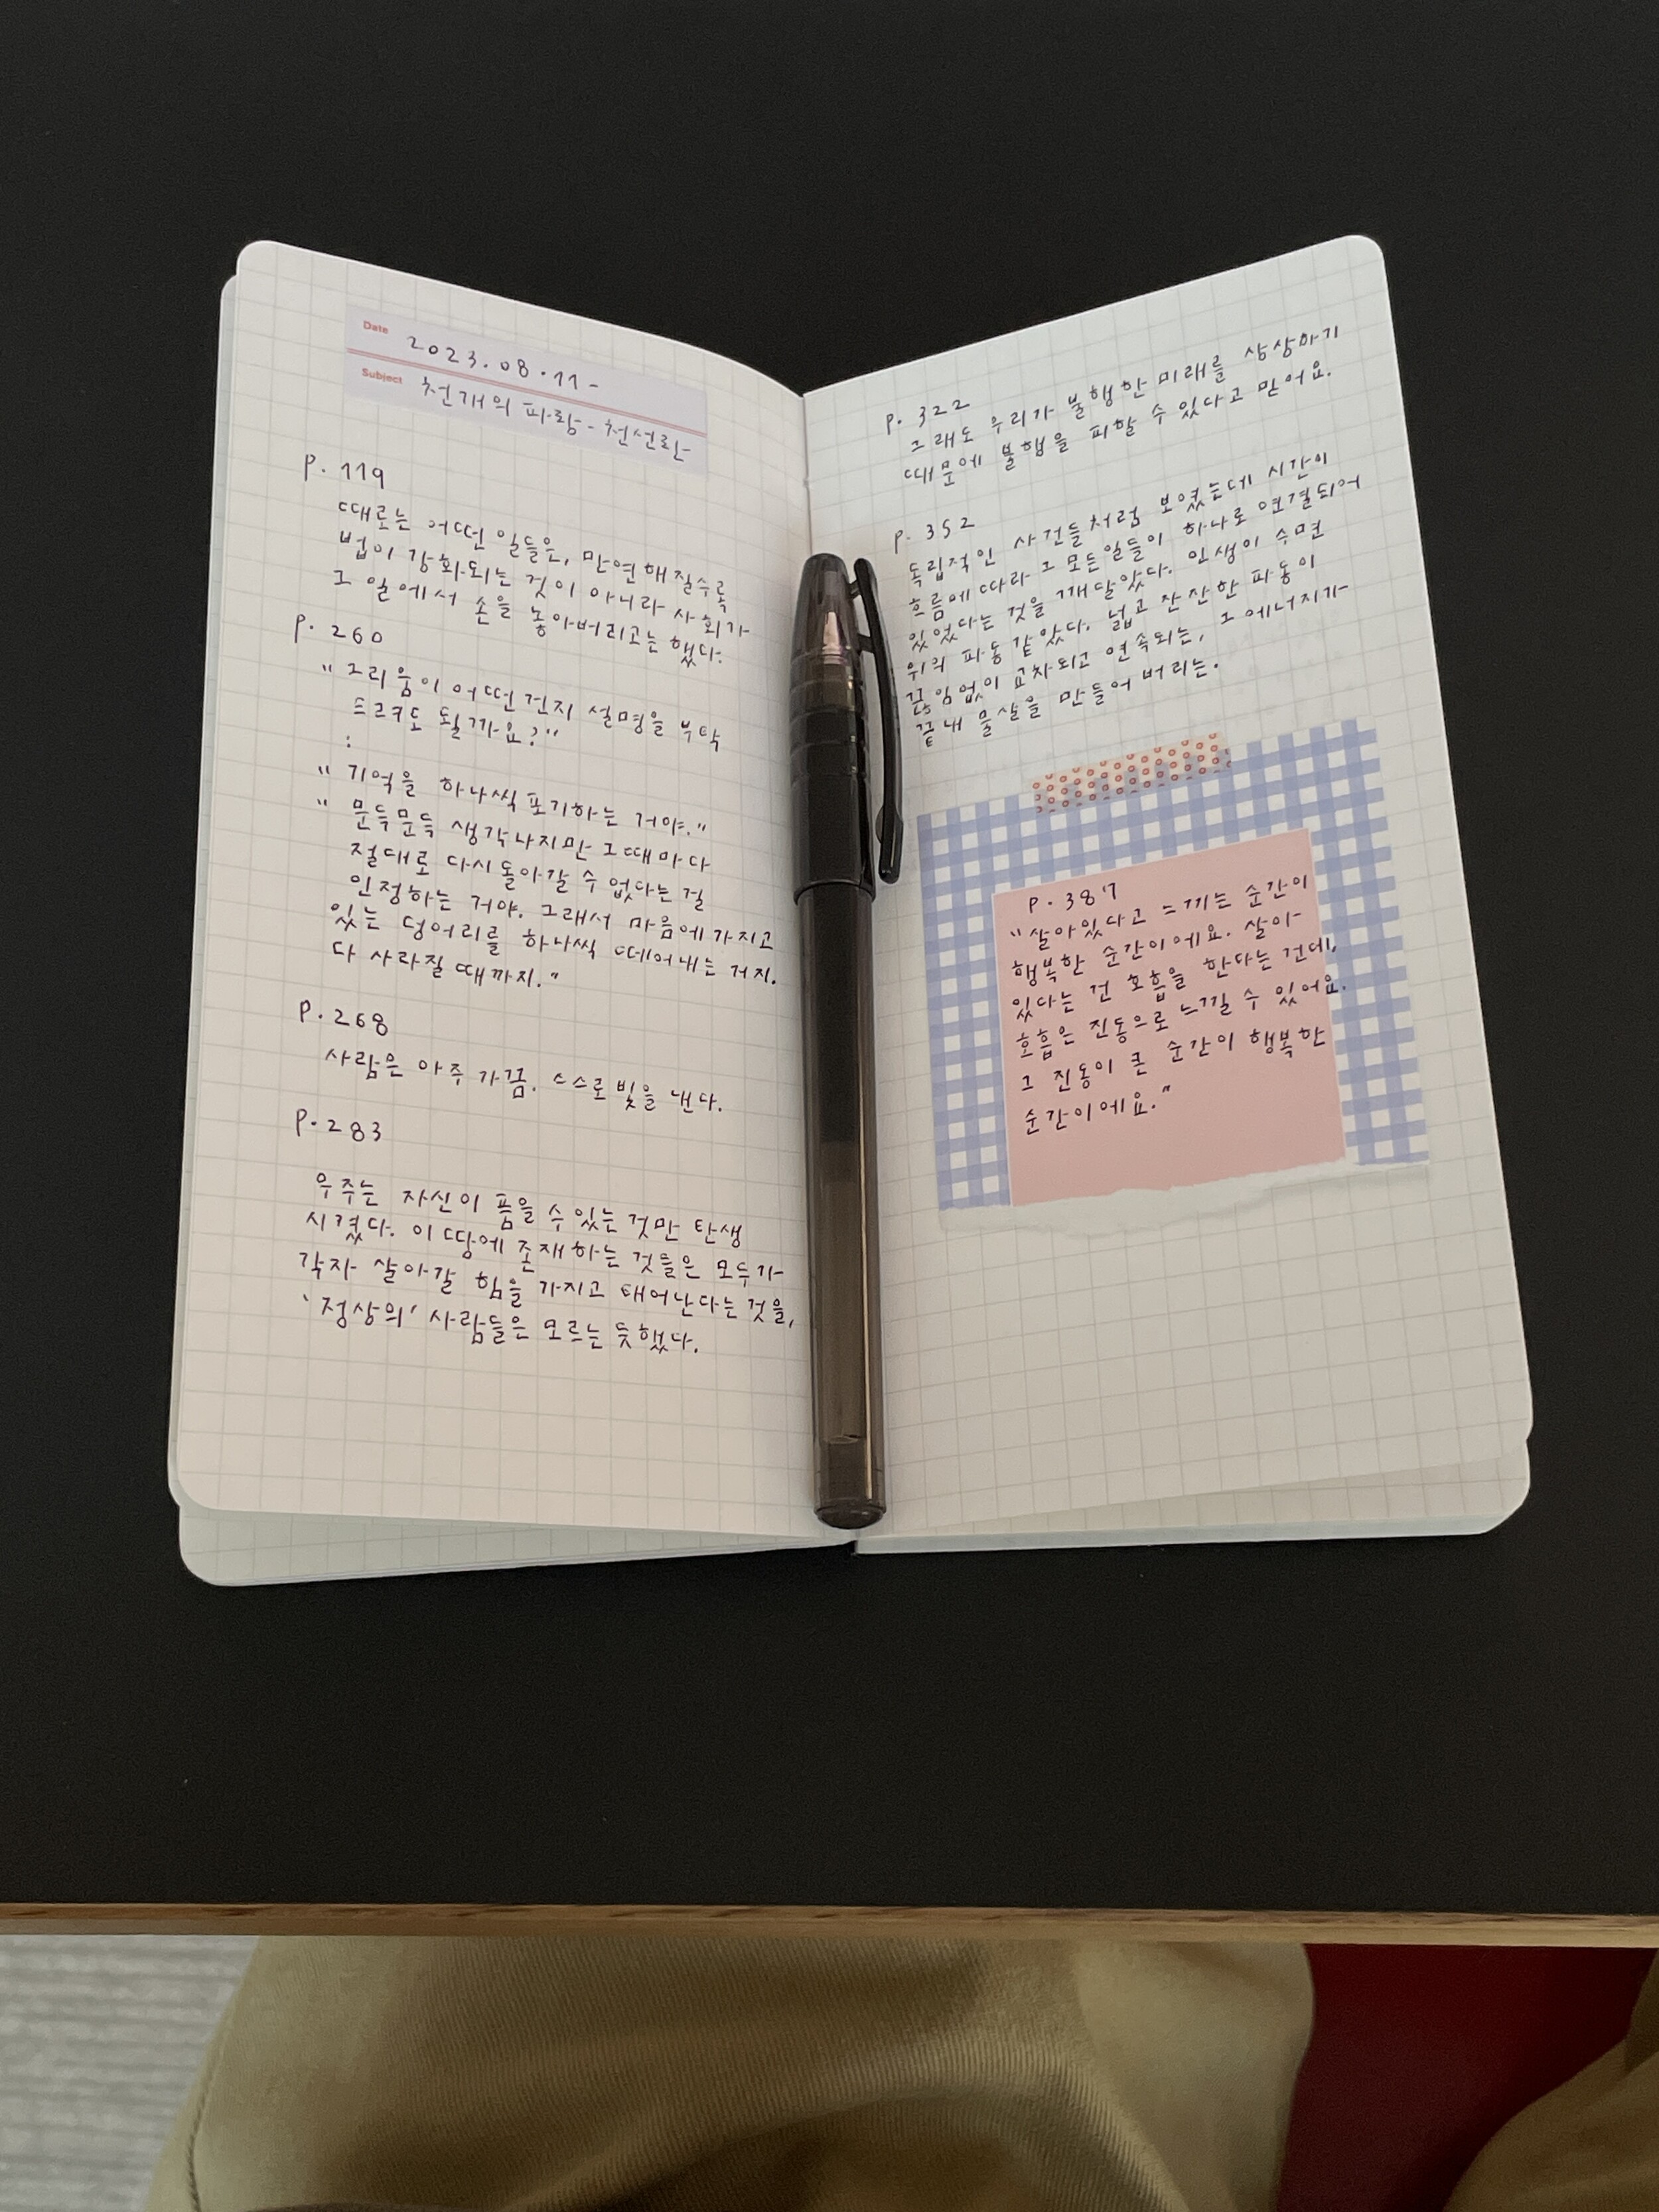 Date 2023.08.11-
Subject 천개의 파랑-천선란
P.119
때로는 어떤 일들은, 만연해질수록
법이 강화되는 것이 아니라 사회가
그 일에서 손을 놓아버리고는 했다.
P.260
"그리움이 어떤건지 설명을 부탁
드려도 될까요?"
:
"기억을 하나씩 포기하는 거야."
"문득문득 생각나지만 그때마다
절대로 다시 돌아갈 수 없다는 걸
인정하는 거야. 그래서 마음에 가지고
있는 덩어리를 하나씩 떼어내는 거지.
다 사라질 때까지."
P.268
사람은 아주 가끔. 스스로 빛을 낸다.
P.283
우주는 자신이 품을 수 있는 것만 탄생
시켰다. 이 땅에 존재하는 것들은 모두가
각자 살아갈 힘을 가지고 태어난다는 것을,
'정상의' 사람들은 모르는 듯했다.
P.322
그래도 우리가 불행한 미래를 상상하기
때문에 불행을 피할 수 있다고 믿어요.
P.352
독립적인 사건들처럼 보였는데 시간이
흐름에 따라 그 모든일들이 하나로 연결되어
있었다는 것을 깨달았다. 인생이 수면
위의 파동 같았다. 넓고 잔잔한 파동이
끊임없이 교차되고 연속되는, 그 에너지가
끝내 물살을 만들어 버리는.
P.387
"살아있다고 느끼는 순간이
행복한 순간이에요. 살아
있다는 건 호흡을 한다는 건데,
호흡은 진동으로 느낄 수 있어요.
그 진동이 큰 순간이 행복한
순간이에요."